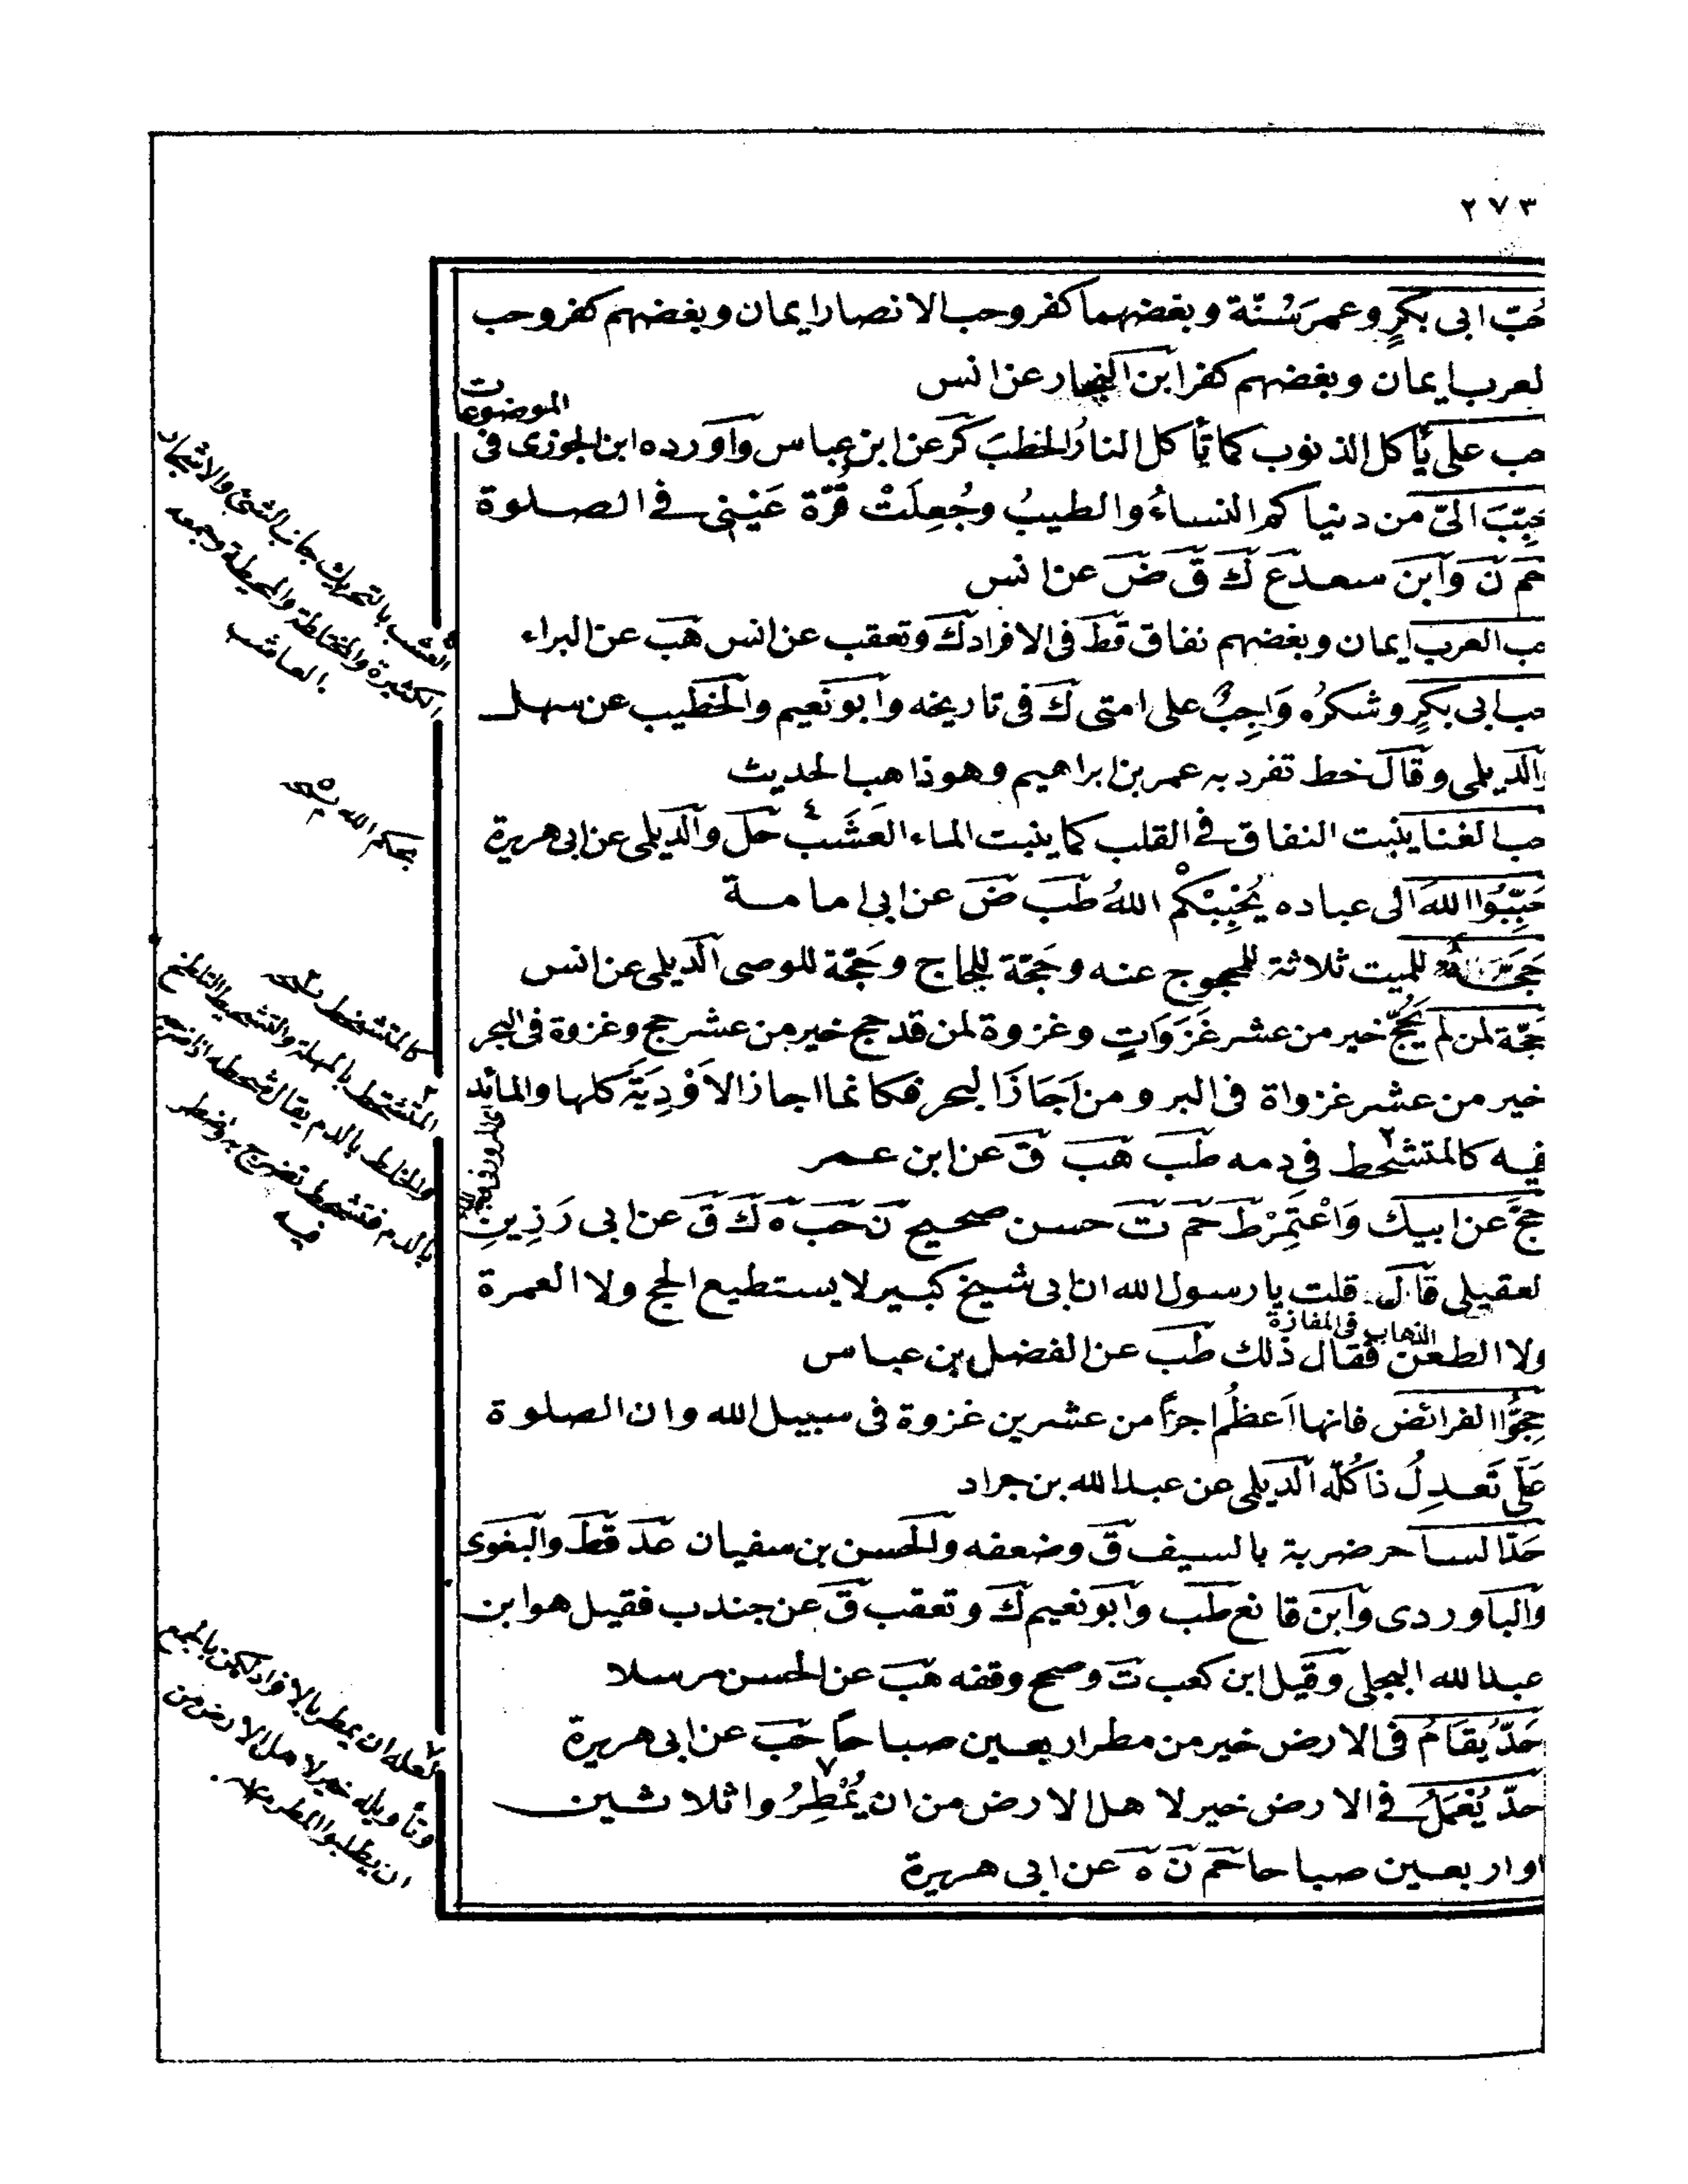 ٢٧٣
حُبّ ابى بكرٍ وعمر سُنّة وبغضهما كفر وحب الانصار ايمان وبغضهم كفر وحب
لعرب ايمان وبغضهم كفر ابن النجار عن انس
الموضوعات
حب على يأكل الذنوب كما تأكل النارُ الحطبَ كر عن ابن عباس واورده ابن الجوزى فى
حبِّبَ الىّ من دنياكم النساءُ والطيبُ وجُعِلَتْ قُرّة عَيْنِى فى الصلوة
حم ن وابن سعد ع ك ق ض عن انس
حب العرب ايمان وبغضهم نفاق قط فى الافراد ك وتعقب عن انس هب عن البراء
حب ابى بكرٍ وشكرُه وَاجِبٌ على امتى ك فى تاريخه وابو نعيم والخطيب عن سهل
والديلمى وقال خط تفرد به عمر بن ابراهيم وهو ذاهب الحديث
حب الغنا ينبت النفاق فى القلب كما ينبت الماء العَشَب ٤ حل والديلمى عن ابى هريرة
حَبِّبُوا اللهَ الى عباده يُحْبِبْكُمْ اللهُ طب ض عن ابى امامة
حَجّة للميت ثلاثة للمحجوج عنه وحَجّة للحاج وحَجّة للوصى الديلمى عن انس
حَجّة لمن لم يَحُجّ خير من عشر غَزَوَاتٍ وغزوة لمن قد حج خير من عشر حج وغزوة فى البحر
خير من عشر غزواة فى البر ومن اَجَازَ البحر فكانما اجاز الاَوْدِيَةَ كلها والمائد
فيه كالمتشحط ٢ فى دمه طب هب ق عن ابن عمر
حُجَّ عن ابيك وَاعْتَمِرْ ط حم ت حسن صحيح ن حب ه ك ق عن ابى رَزِينٍ
لعقيلى قال قلت يا رسول الله ان ابى شيخ كبير لا يستطيع الحج ولا العمرة
الذهاب فى المفازة
ولا الطعن فقال ذلك طب عن الفضل بن عباس
حِجُّوا الفرائض فانها اَعظُم اجرًا من عشرين غزوة فى سبيل الله وان الصلوة
عَلَىَّ تَعدِلُ ذا كُلّه الديلمى عن عبد الله بن جراد
حَدّ الساحر ضربة بالسيف ق وضعفه والحسن بن سفيان عد قط والبغوى
والباوردى وابن قانع طب وابو نعيم ك وتعقب ق عن جندب فقيل هو ابن
عبد الله البجلى وقيل ابن كعب ت وصحح وقفه هب عن الحسن مرسلا
حَدّ يُقَامُ فى الارض خير من مطر اربعين صباحًا حب عن ابى هريرة
حدّ يُعْمَلُ فى الارض خير لاهل الارض من ان يُمْطِرُوا ٧ ثلاثين
او اربعين صباحا حم ن ه عن ابى هريرة
العشب بالتحريك جانب الشئ والاشجار
الكثيرة والمختلطة والمحيطة وجمعه
بالعاشب
بحكم الله
كالمتشخط نسخه
المتشحط بالمهملة والتشحيط التلطخ
والخلط بالدم يقال شحطه اذا ضرجه
بالدم فتشحط تضرج به واضطر
فيه
لعله ان يمطر بالافراد لكن بالجمع
وتأويله خير لاهل الارض من
ان يطلبوا المطر